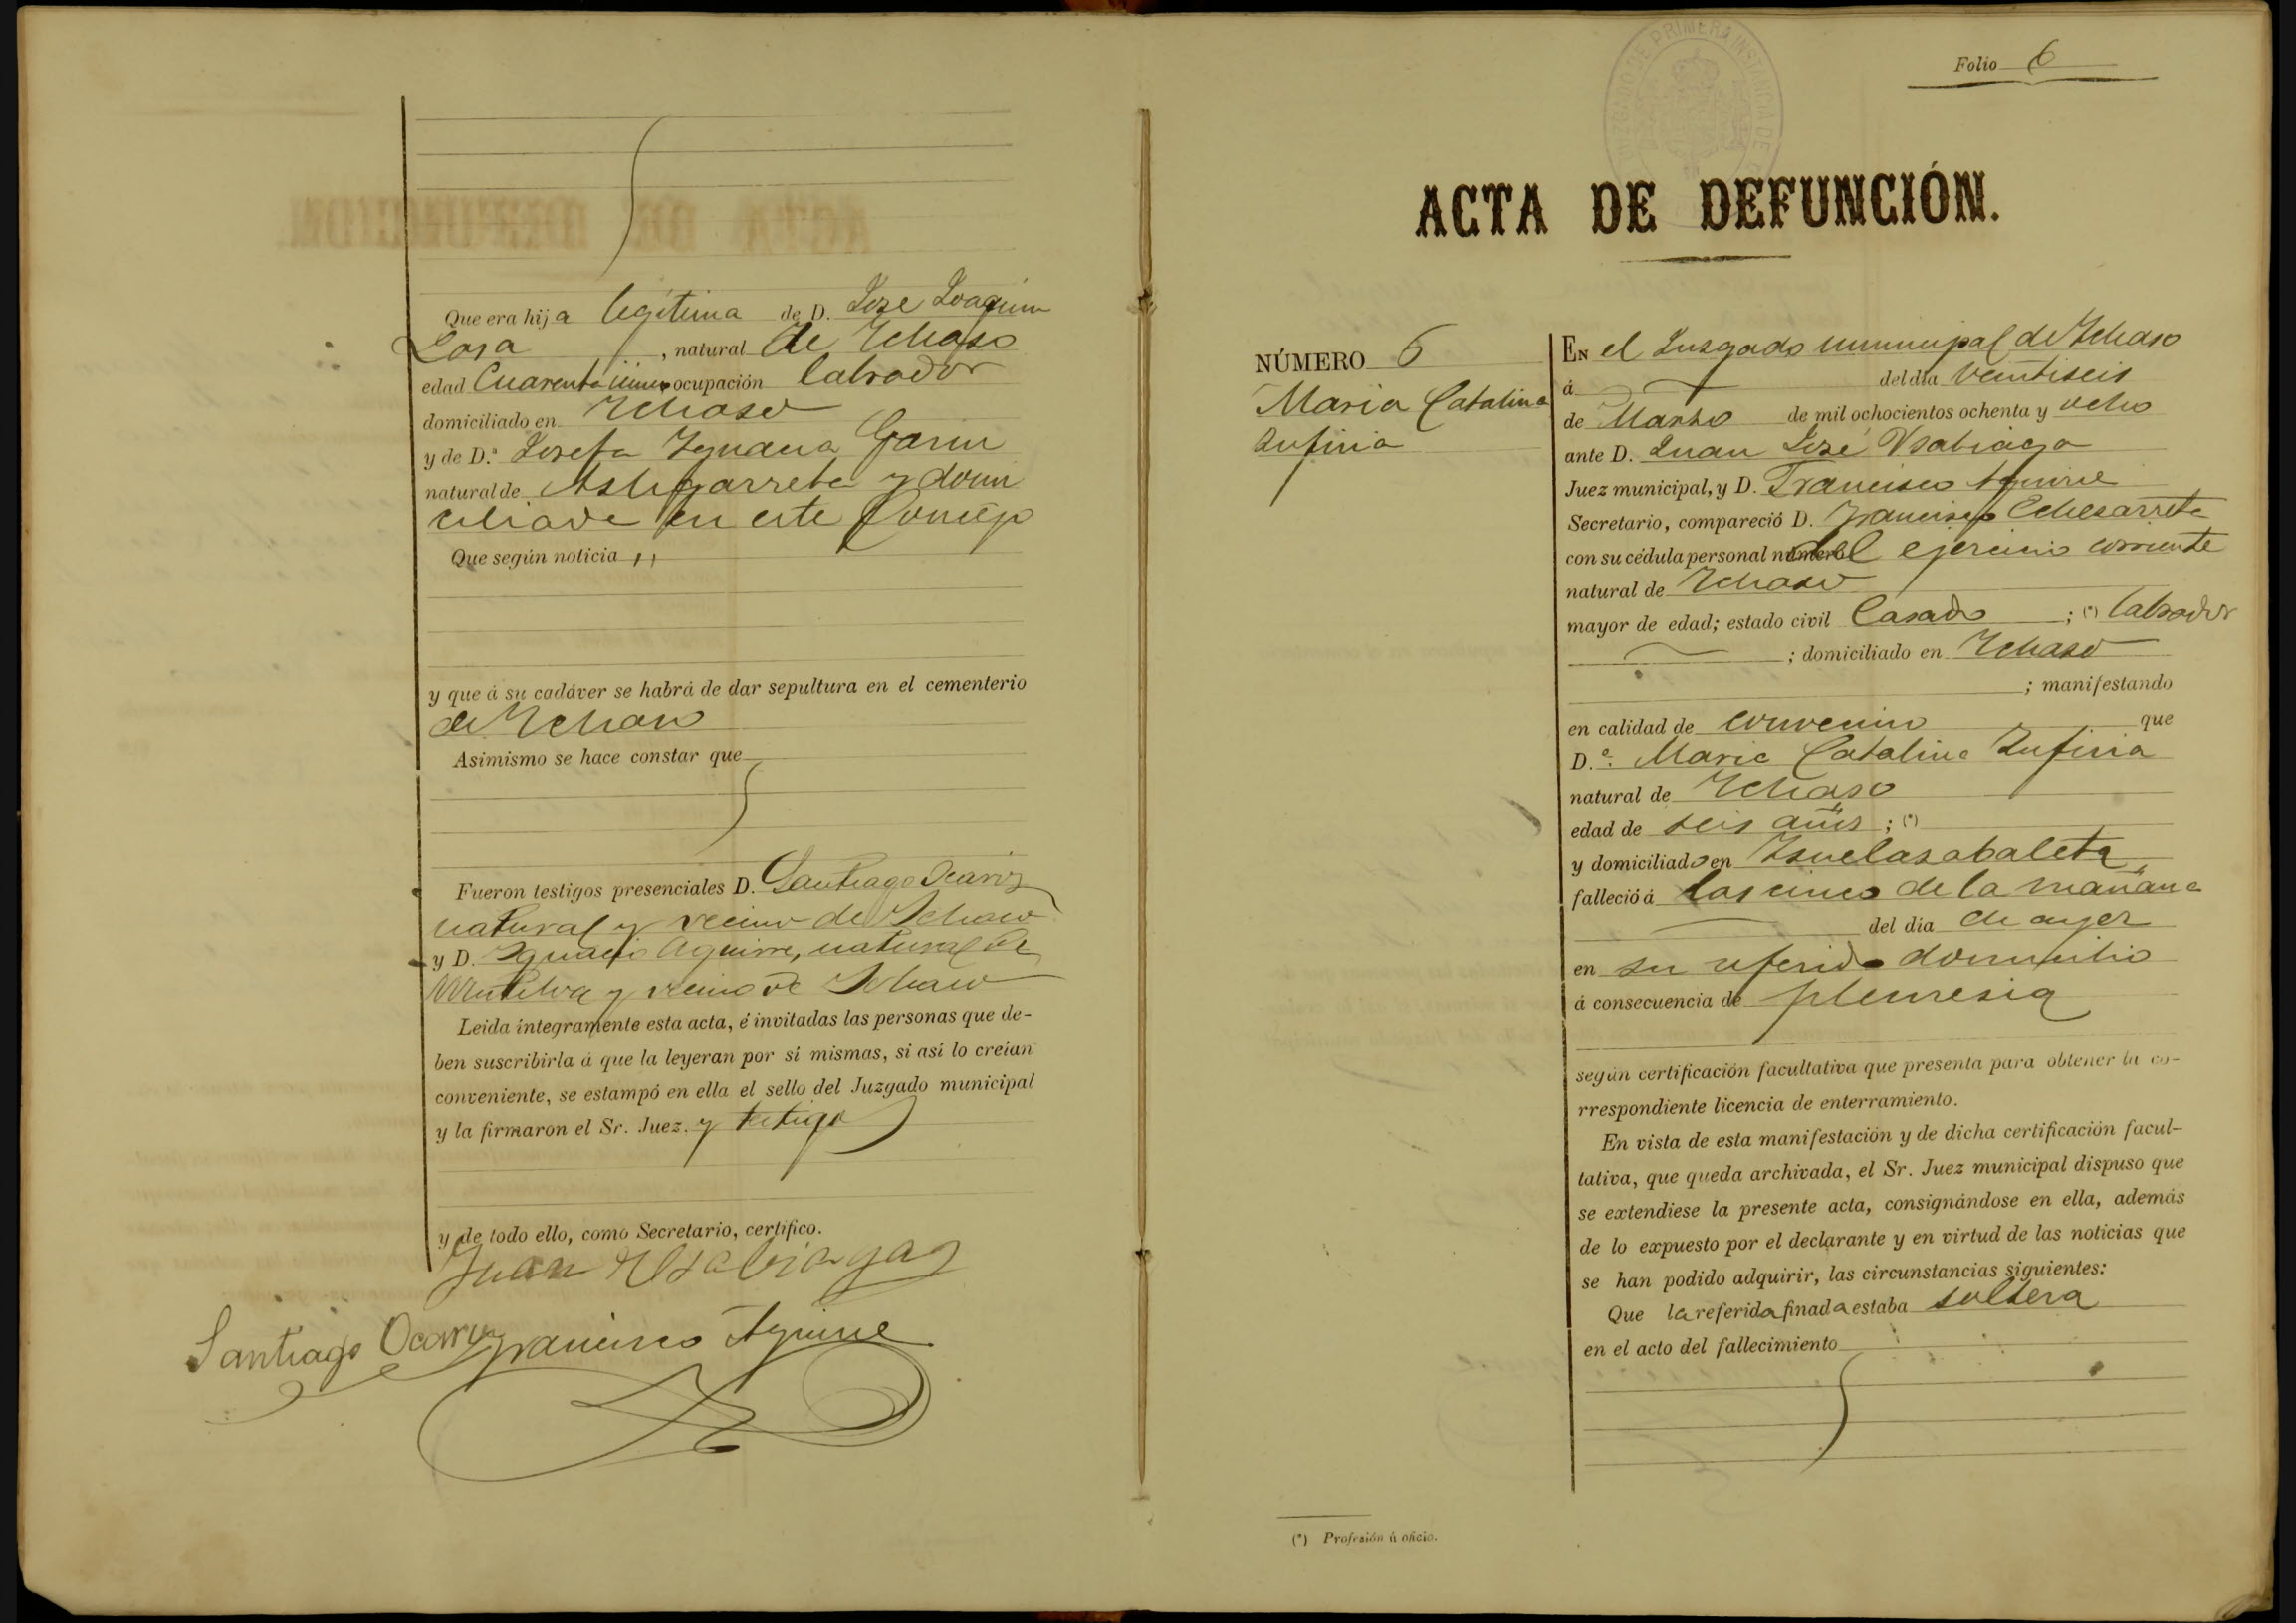 Que era hija legítima de D. José Joaquin
Lasa, natural de Ichaso
edad Cuarenta ocupación labrador
domiciliado en Ichaso
y de D.ª Josefa Ignacia Garin
natural de Astigarreta y domi
ciliada en este Concejo
Que según noticia
y que á su cadáver se habrá de dar sepultura en el cementerio
de Ichaso
Asimismo se hace constar que
Fueron testigos presenciales D. Santiago Ocariz
natural y vecino de Ichaso
y D. Ignacio Aguirre, natural de
Mutiloa y vecino de Ichaso
Leida íntegramente esta acta, é invitadas las personas que de-
ben suscribirla á que la leyeran por sí mismas, si así lo creían
conveniente, se estampó en ella el sello del Juzgado municipal
y la firmaron el Sr. Juez. y testigo
y de todo ello, como Secretario, certifico.
Juan
Santiago Ocariz Francisco Aguirre
JUZGADO DE PRIMERA INSTANCIA DE
Folio 6
ACTA DE DEFUNCIÓN.
NÚMERO 6
Maria Catalina
EN el Juzgado municipal de Ichaso
á del dia veintiseis
de Marzo de mil ochocientos ochenta y ocho
ante D. Juan José
Juez municipal, y D. Francisco Aguirre
Secretario, compareció D. Francisco Echezarreta
con su cédula personal número del ejercicio corriente
natural de Ichaso
mayor de edad; estado civil Casado ; (*) labrador
; domiciliado en Ichaso
; manifestando
en calidad de convecino que
D.ª Maria Catalina
natural de Ichaso
edad de seis años ; (*)
y domiciliado en
falleció á las cinco de la mañana
del dia de ayer
en su referido domicilio
á consecuencia de pleuresia
según certificación facultativa que presenta para obtener la co-
rrespondiente licencia de enterramiento.
En vista de esta manifestación y de dicha certificación facul-
tativa, que queda archivada, el Sr. Juez municipal dispuso que
se extendiese la presente acta, consignándose en ella, además
de lo expuesto por el declarante y en virtud de las noticias que
se han podido adquirir, las circunstancias siguientes:
Que la referida finada estaba soltera
en el acto del fallecimiento
(*) Profesión ú oficio.